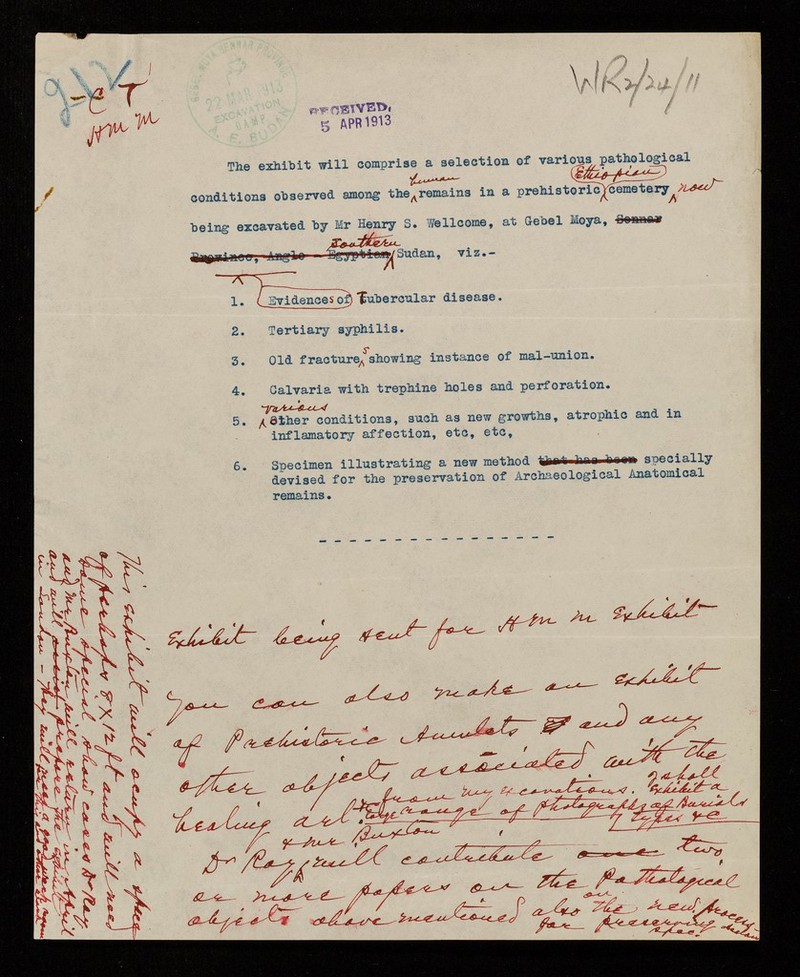 C T
H M M
GEBEL MOYA SENNAR PROVINCE
22 MAR 1913
EXCAVATION
CAMP
A. E. SUDAN
RECEIVED,
5 APR 1913
WR2/24/11
The exhibit will comprise a selection of various pathological
human Ethiopian
conditions observed among the remains in a prehistoric cemetery now
being excavated by Mr Henry S. Wellcome, at Gebel Moya, Sennar
Southern
Province, Anglo - Egyptian Sudan, viz.-
1. Evidences of Tubercular disease.
2. Tertiary syphilis.
3. Old fractures showing instance of mal-union.
4. Calvaria with trephine holes and perforation.
various
5. other conditions, such as new growths, atrophic and in
inflamatory affection, etc, etc,
6. Specimen illustrating a new method that has been specially
devised for the preservation of Archaeological Anatomical
remains.
- - - - - - - - - - - - - - - -
Exhibit being sent for H M M Exhibit
You can also make an exhibit
of Prehistoric Amulets and any
other objects associated with the
healing art from my excavations. I shall
exhibit a
large range of photographs of Burials
types &c
& Mr Buxton
Dr Ray will contribute one two
or more papers on the Pathological
objects above mentioned also on the new process
for preserving
spec.
This exhibit will occupy a space
of perhaps 8 X 12 ft and will need
some special show cases Dr Ray
and Mr Buxton will return in April
and will prepare the exhibit
in London - They will need a good work room
for this and other